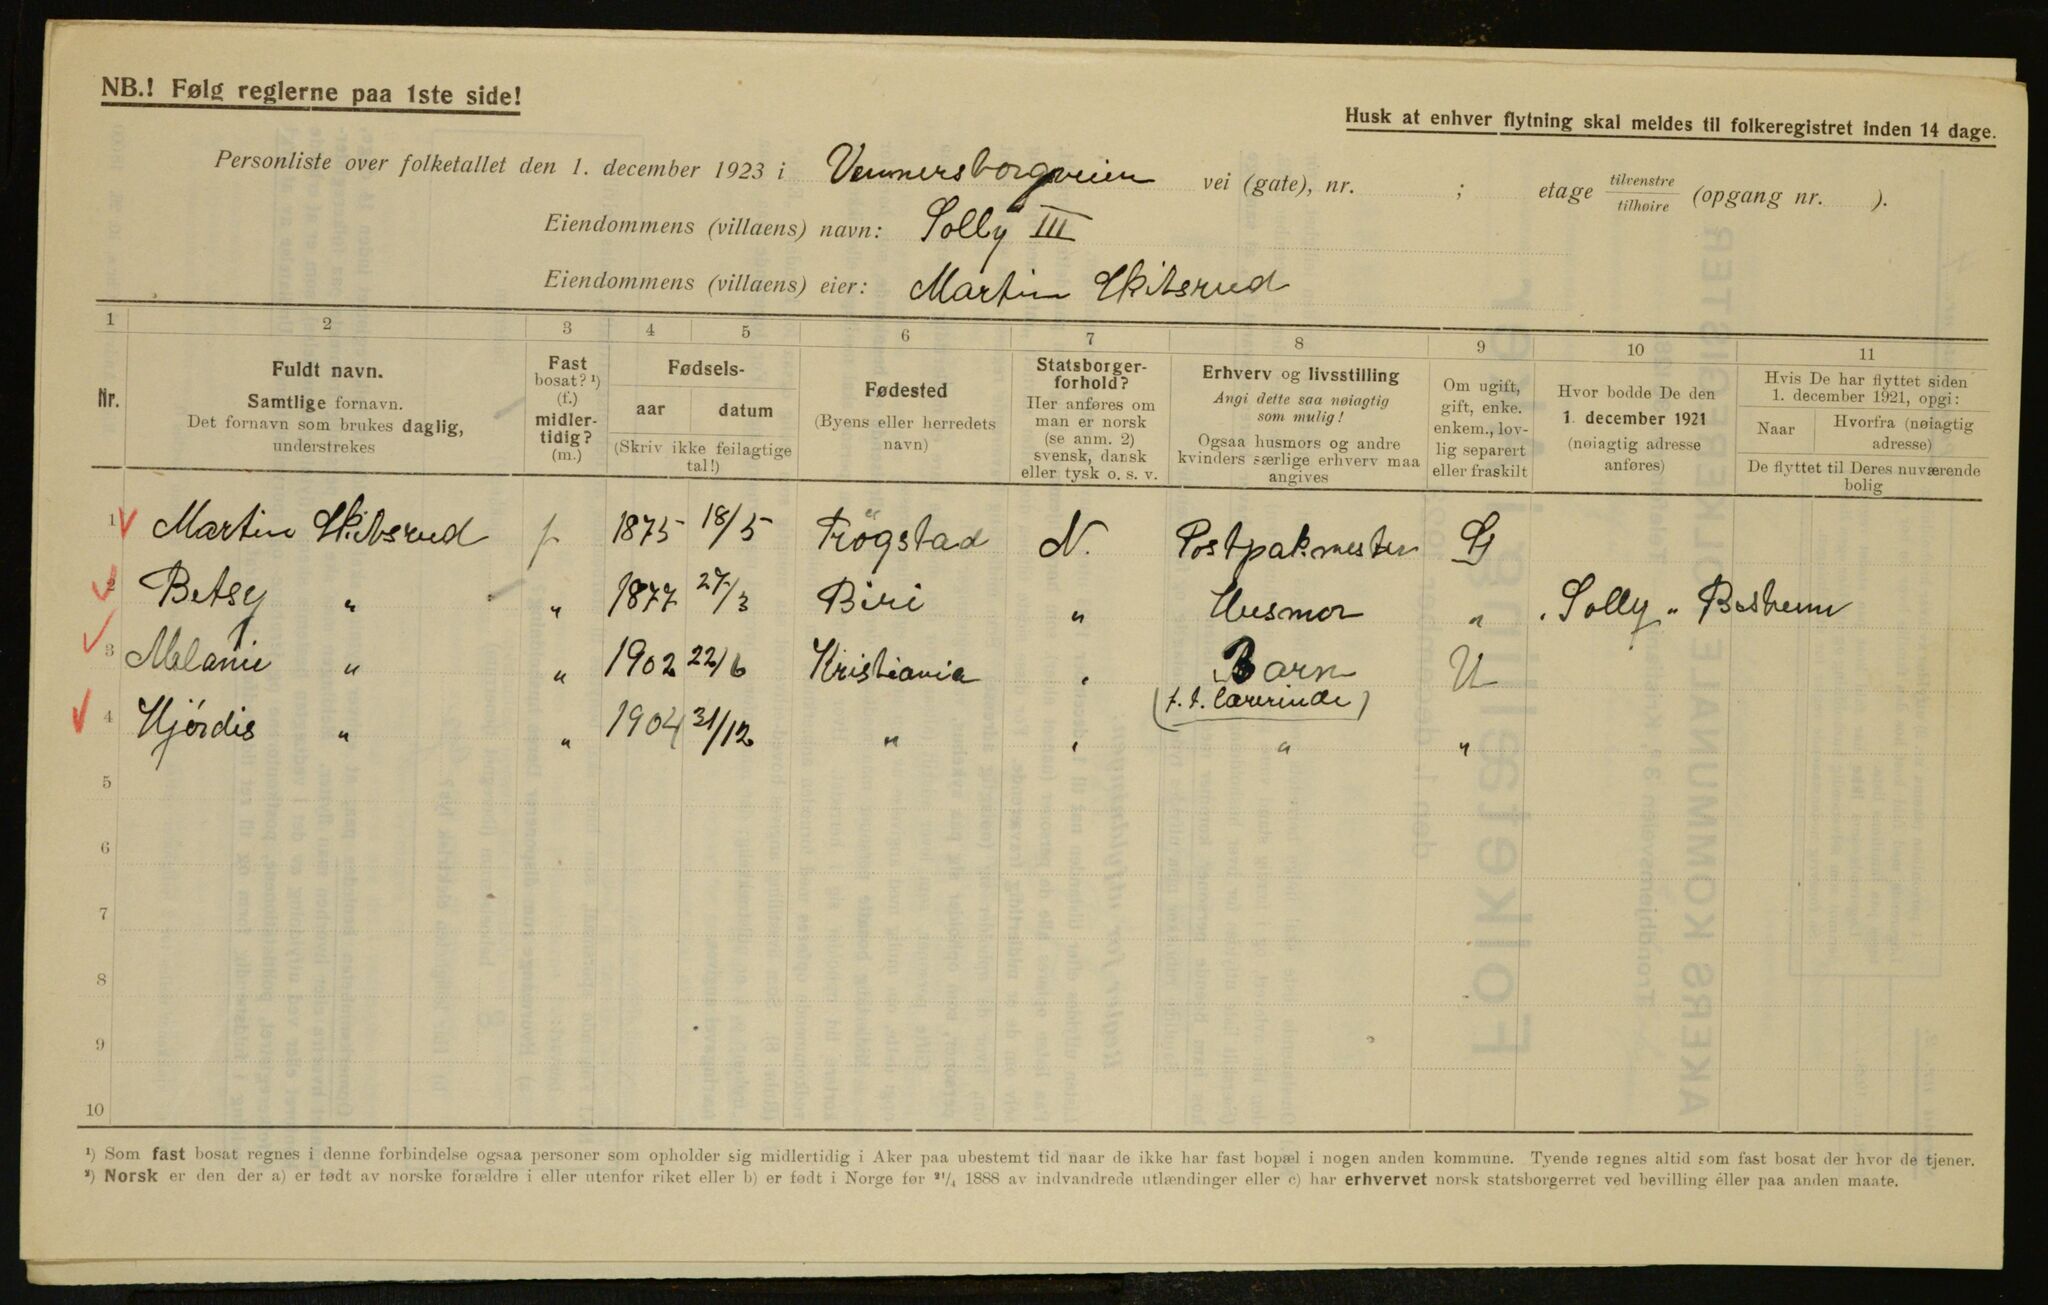 NB.! Følg reglerne paa 1ste side!
Husk at enhver flytning skal meldes til folkeregistret inden 14 dage.
Personliste over folketallet den 1. december 1923 i Vennersborgveien vei (gate), nr. ; etage tilvenstre/tilhøire (opgang nr. ).
Eiendommens (villaens) navn: Solly III
Eiendommens (villaens) eier: Martin Skitsrud
1 2 3 4 5 6 7 8 9 10 11
Nr.
Fuldt navn.
Samtlige fornavn.
Det fornavn som brukes daglig,
understrekes
Fast
bosat? ¹)
(f.)
midler-
tidig?
(m.)
Fødsels-
aar datum
(Skriv ikke feilagtige
tal!)
Fødested
(Byens eller herredets
navn)
Statsborger-
forhold?
Her anføres om
man er norsk
(se anm. 2)
svensk, dansk
eller tysk o. s. v.
Erhverv og livsstilling
Angi dette saa nøiagtig
som mulig!
Ogsaa husmors og andre
kvinders særlige erhverv maa
angives
Om ugift,
gift, enke.
enkem., lov-
lig separert
eller fraskilt
Hvor bodde De den
1. december 1921
(nøiagtig adresse
anføres)
Hvis De har flyttet siden
1. december 1921, opgi:
Naar Hvorfra (nøiagtig
adresse)
De flyttet til Deres nuværende
bolig
1 Martin Skitsrud f 1875 18/5 Trøgstad N. Postpakmester G
2 Betsy " " 1877 27/3 Biri " Husmor " "Solly" Bestum
3 Melanie " " 1902 22/6 Kristiania " Barn U
(f. t. Lærerinde)
4 Hjørdis " " 1904 31/12 " " " "
5
6
7
8
9
10
¹) Som fast bosat regnes i denne forbindelse ogsaa personer som opholder sig midlertidig i Aker paa ubestemt tid naar de ikke har fast bopæl i nogen anden kommune. Tyende regnes altid som fast bosat der hvor de tjener.
²) Norsk er den der a) er født av norske forældre i eller utenfor riket eller b) er født i Norge før 21/4 1888 av indvandrede utlændinger eller c) har erhvervet norsk statsborgerret ved bevilling eller paa anden maate.